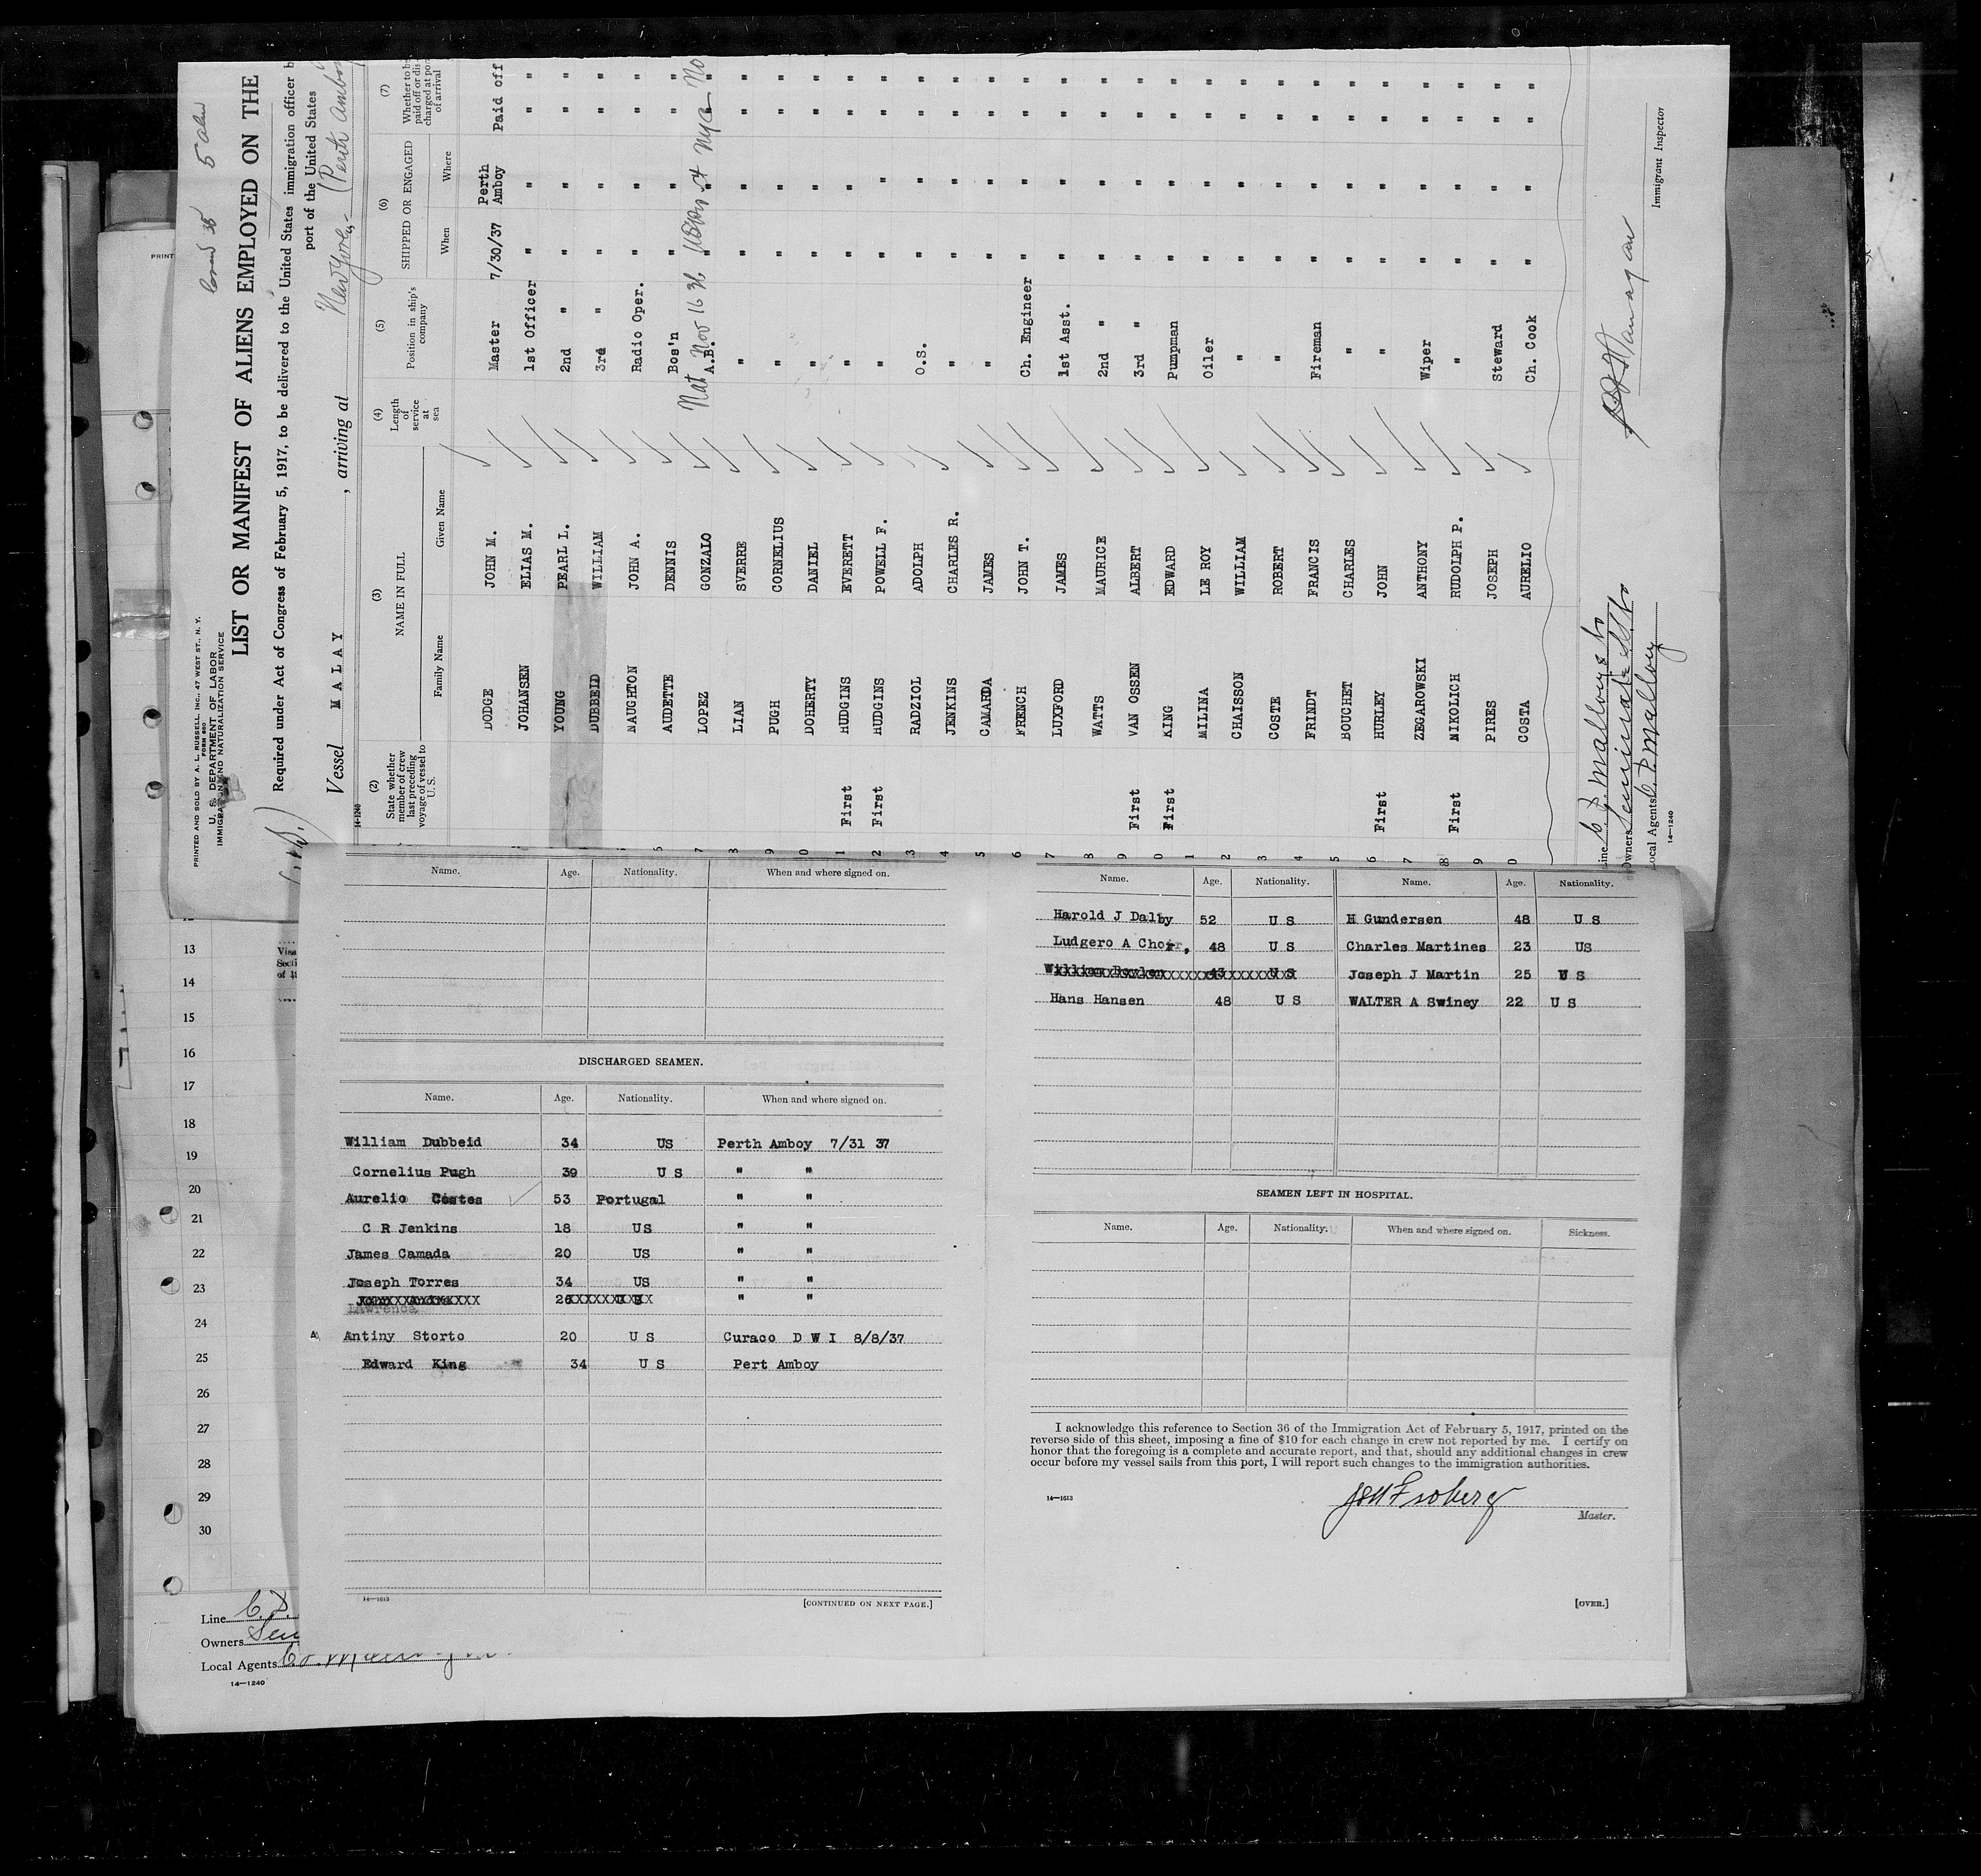 PRINTED AND SOLD BY A. L. RUSSELL, INC., 47 WEST ST., N. Y.
FORM 680
U. S. DEPARTMENT OF LABOR
IMMIGRATION AND NATURALIZATION SERVICE
LIST OR MANIFEST OF ALIENS EMPLOYED ON THE
Required under Act of Congress of February 5, 1917, to be delivered to the United States immigration officer b
port of the United States
Vessel MALAY, arriving at New York, (Perth Amboy
14-1240
(2) (3) (4) (5) (6) (7)
State whether member of crew last preceding voyage of vessel to U. S.
NAME IN FULL
Family Name Given Name
Length of service at sea
Position in ship's company
SHIPPED OR ENGAGED
When Where
Whether to be paid off or discharged at port of arrival
DODGE JOHN M. Master 7/30/37 Perth Amboy Paid off
JOHANSEN ELIAS M. 1st Officer " " " "
YOUNG PEARL L. 2nd " " " " "
DUBBEID WILLIAM 3rd " " " " "
NAUGHTON JOHN A. Radio Oper. " " " "
AUDETTE DENNIS Bos'n " " " "
LOPEZ GONZALO A.B. " " " "
Nat Nov 16 36
LIAN SVERRE " " " " "
PUGH CORNELIUS " " " " "
DOHERTY DANIEL " " " " "
First HUDGINS EVERETT " " " " "
First HUDGINS POWELL F. " " " " "
RADZIOL ADOLPH O.S. " " " "
JENKINS CHARLES R. " " " " "
CAMARDA JAMES " " " " "
FRENCH JOHN T. Ch. Engineer " " " "
LUXFORD JAMES 1st Asst. " " " "
WATTS MAURICE 2nd " " " " "
First VAN OSSEN ALBERT 3rd " " " " "
First KING EDWARD Pumpman " " " "
MILINA LE ROY Oiler " " " "
CHAISSON WILLIAM " " " " "
COSTE ROBERT " " " " "
FRINDT FRANCIS Fireman " " " "
BOUCHET CHARLES " " " " "
First HURLEY JOHN " " " " "
ZEGAROWSKI ANTHONY Wiper " " " "
First NIKOLICH RUDOLPH P. " " " " "
PIRES JOSEPH Steward " " " "
COSTA AURELIO Ch. Cook " " " "
Immigrant Inspector
Line C. D. Mallory & Co
Owners
Local Agents C. D. Mallory
14-1240
Name. Age. Nationality. When and where signed on.
DISCHARGED SEAMEN.
Name. Age. Nationality. When and where signed on.
William Dubbeid 34 US Perth Amboy 7/31 37
Cornelius Pugh 39 U S " "
Aurelio Costes 53 Portugal " "
C R Jenkins 18 US " "
James Camada 20 US " "
Joseph Torres 34 US " "
" "
Lawrence
A Antiny Storto 20 U S Curaco D W I 8/8/37
Edward King 34 U S Pert Amboy
14—1613
[CONTINUED ON NEXT PAGE.]
Name. Age. Nationality. Name. Age. Nationality.
Harold J Dalby 52 U S H Gundersen 48 U S
Ludgero A 48 U S Charles Martines 23 US
Joseph J Martin 25 U S
Hans Hansen 48 U S WALTER A Swiney 22 U S
SEAMEN LEFT IN HOSPITAL.
Name. Age. Nationality. When and where signed on. Sickness.
I acknowledge this reference to Section 36 of the Immigration Act of February 5, 1917, printed on the
reverse side of this sheet, imposing a fine of $10 for each change in crew not reported by me. I certify on
honor that the foregoing is a complete and accurate report, and that, should any additional changes in crew
occur before my vessel sails from this port, I will report such changes to the immigration authorities.
14—1613
Master.
[OVER.]
PRINT
13
14
15
16
17
18
19
20
21
22
23
24
25
26
27
28
29
30
Line C. D.
Owners
Local Agents
14—1240